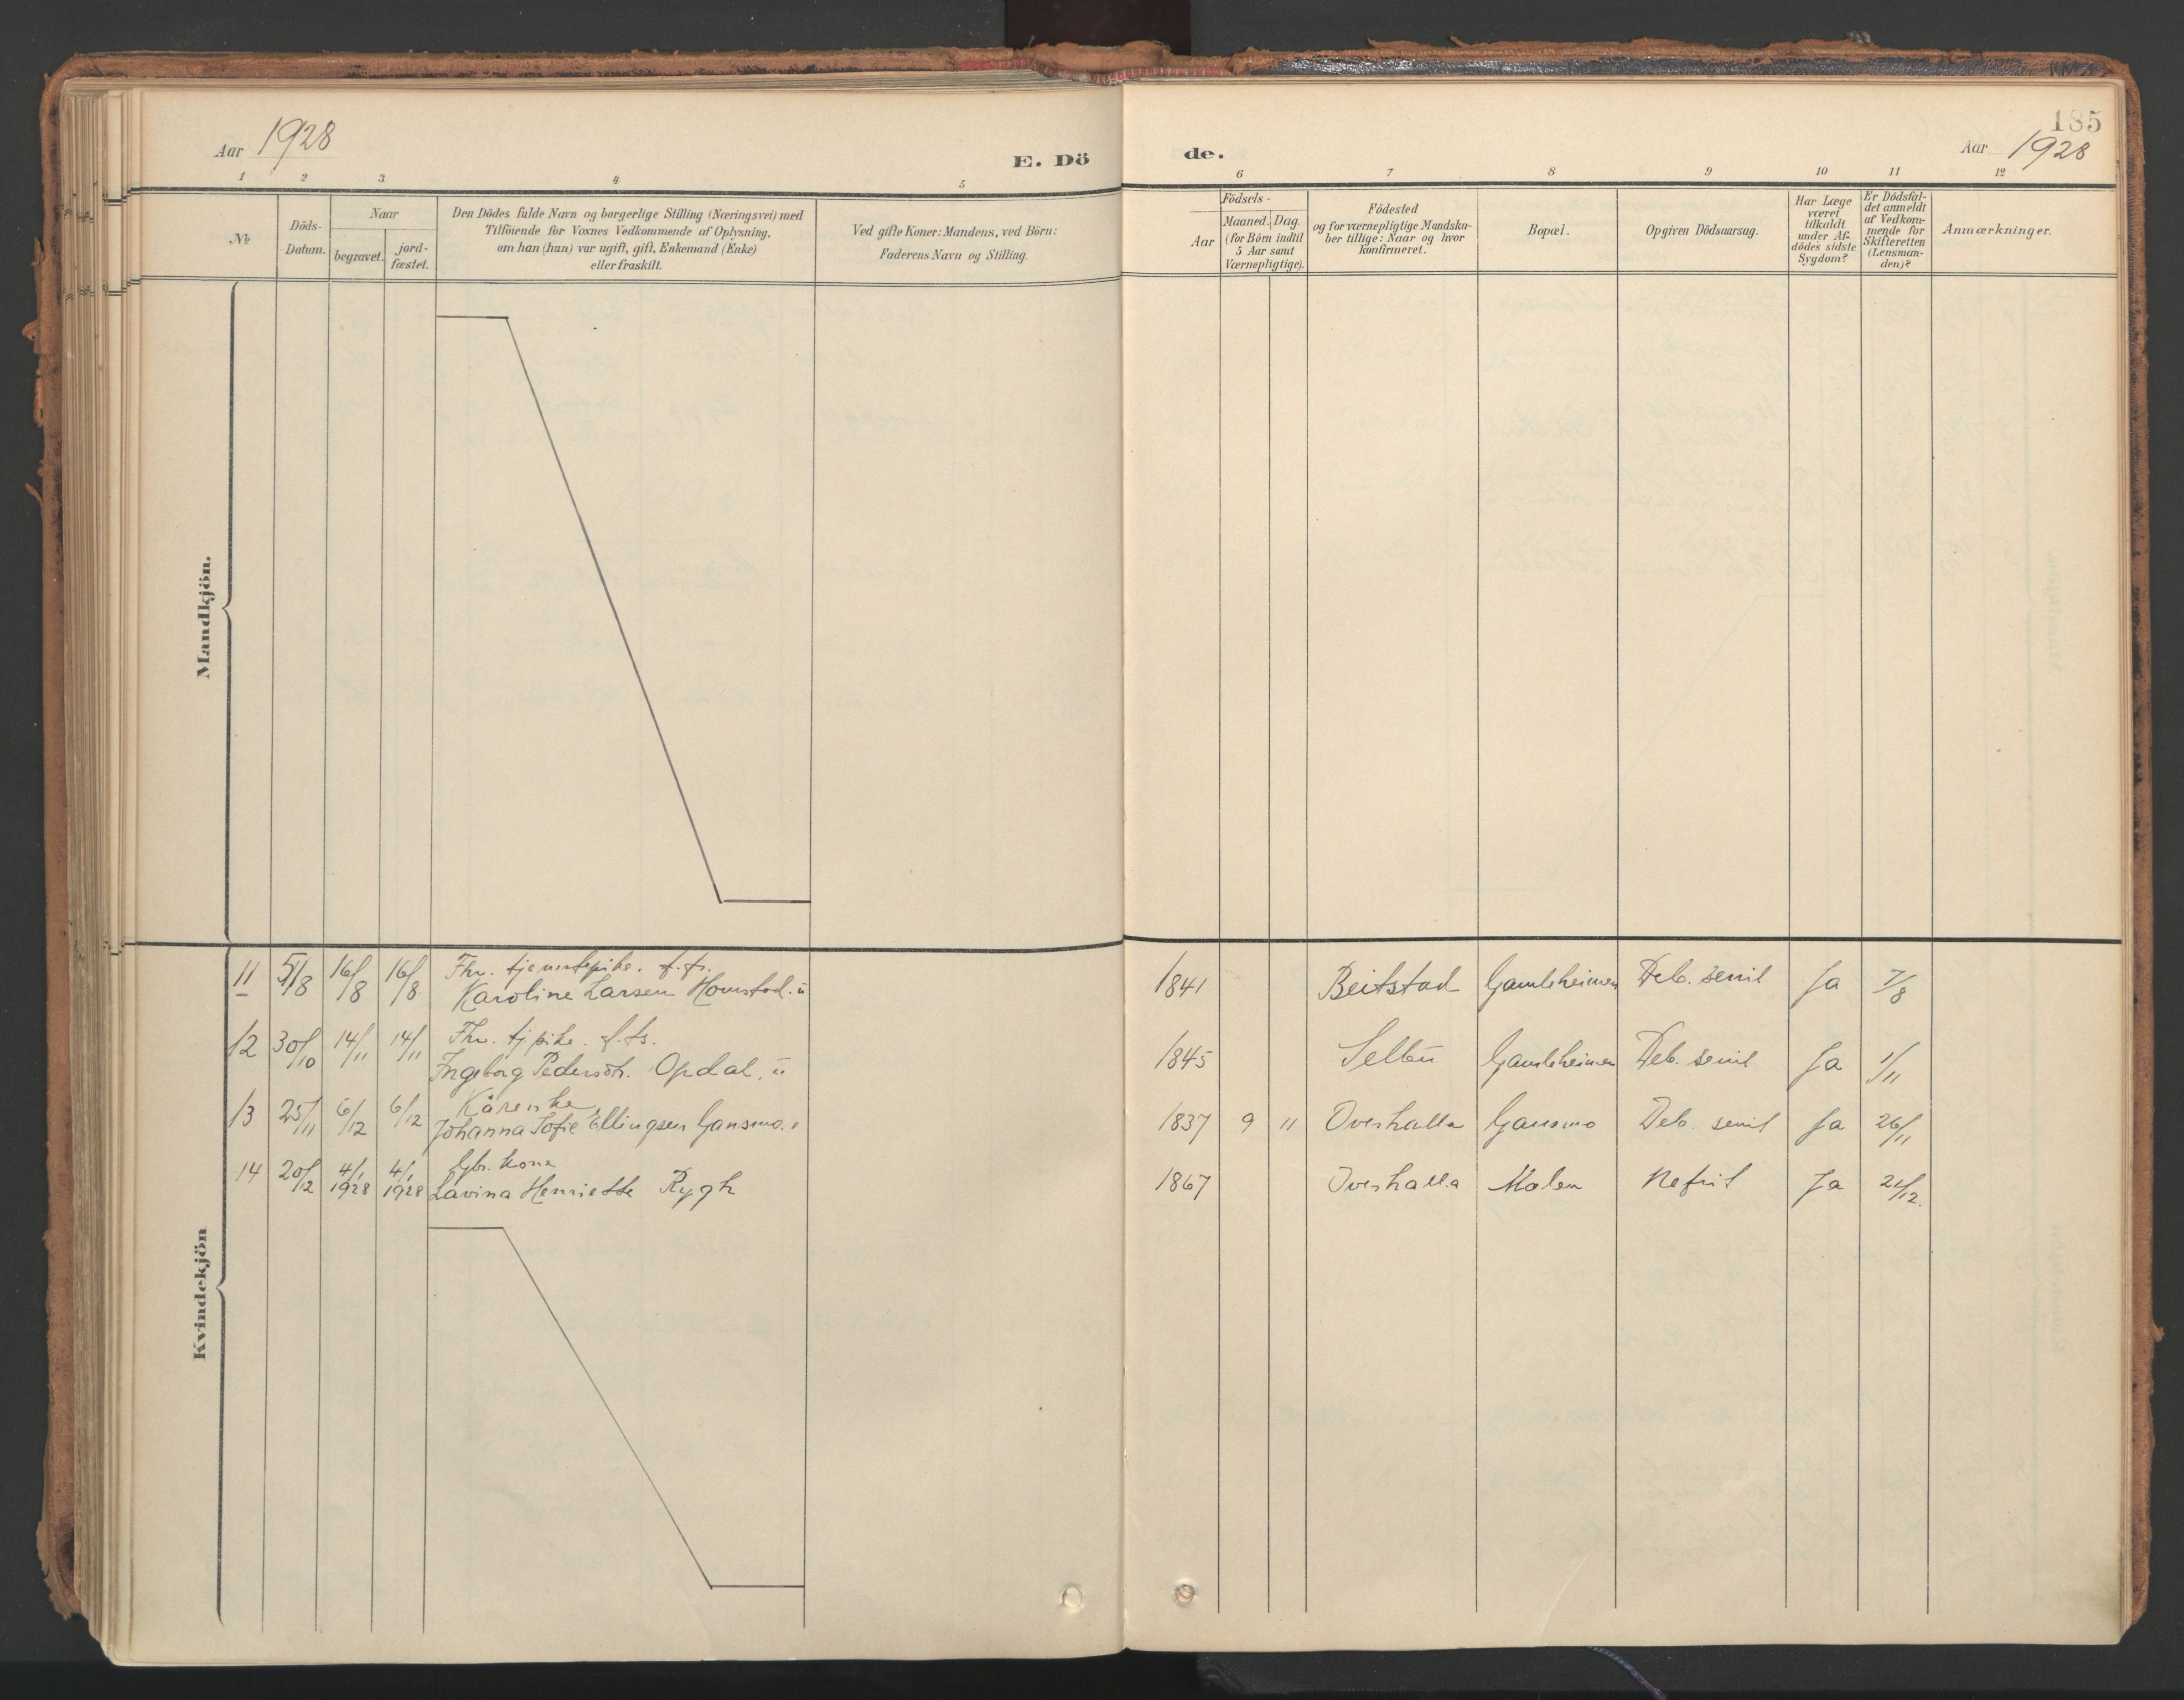 185
Aar 1928
E. Dö
de.
Aar 1928
1 2 3 4 5
6 7 8 9 10 11 12
No
Döds-
Datum.
Naar
begravet.
jord-
fæstet.
Den Dödes fulde Navn og borgerlige Stilling (Næringsvei) med
Tilföiende for Voxnes Vedkommende af Oplysning,
om han (hun) var ugift, gift, Enkemand (Enke)
eller fraskilt.
Ved gifte Koner: Mandens, ved Börn:
Faderens Navn og Stilling.
Födsels -
Aar
Maaned. Dag.
(for Börn indtil
5 Aar samt
Værnepligtige).
Födested
og for værnepligtige Mandska-
ber tillige: Naar og hvor
konfirmeret.
Bopæl.
Opgiven Dödsaarsag.
Har Læge
været
tilkaldt
under Af-
dödes sidste
Sygdom?
Er Dödsfal-
det anmeldt
af Vedkom-
mende for
Skifteretten
(Lensman-
den)?
Anmærkninger.
Mandkjön.
Kvindekjön
Fhv. tjenestepike. f.fs.
11 5/8 16/8 16/8 Karoline Larsen Homstad. u 1841 Beitstad Gamleheimen Deb. senil Ja 7/8
Fhv. tj.pike. f.fs.
12 30/10 14/11 14/11 Ingeborg Pedersdtr. Opdal. u 1845 Selbu Gamleheimen Deb. senil Ja 1/11
Kårenke
13 25/11 6/12 6/12 Johanna Sofie Ellingsen Gansmo. 1837 9 11 Overhalla Gansmo Deb. senil Ja 26/11
Gbr. kone
14 20/12 4/1 1928 4/1 1928 Lavina Henriette Rygh 1867 Overhalla Moen Nefrit Ja 21/12.